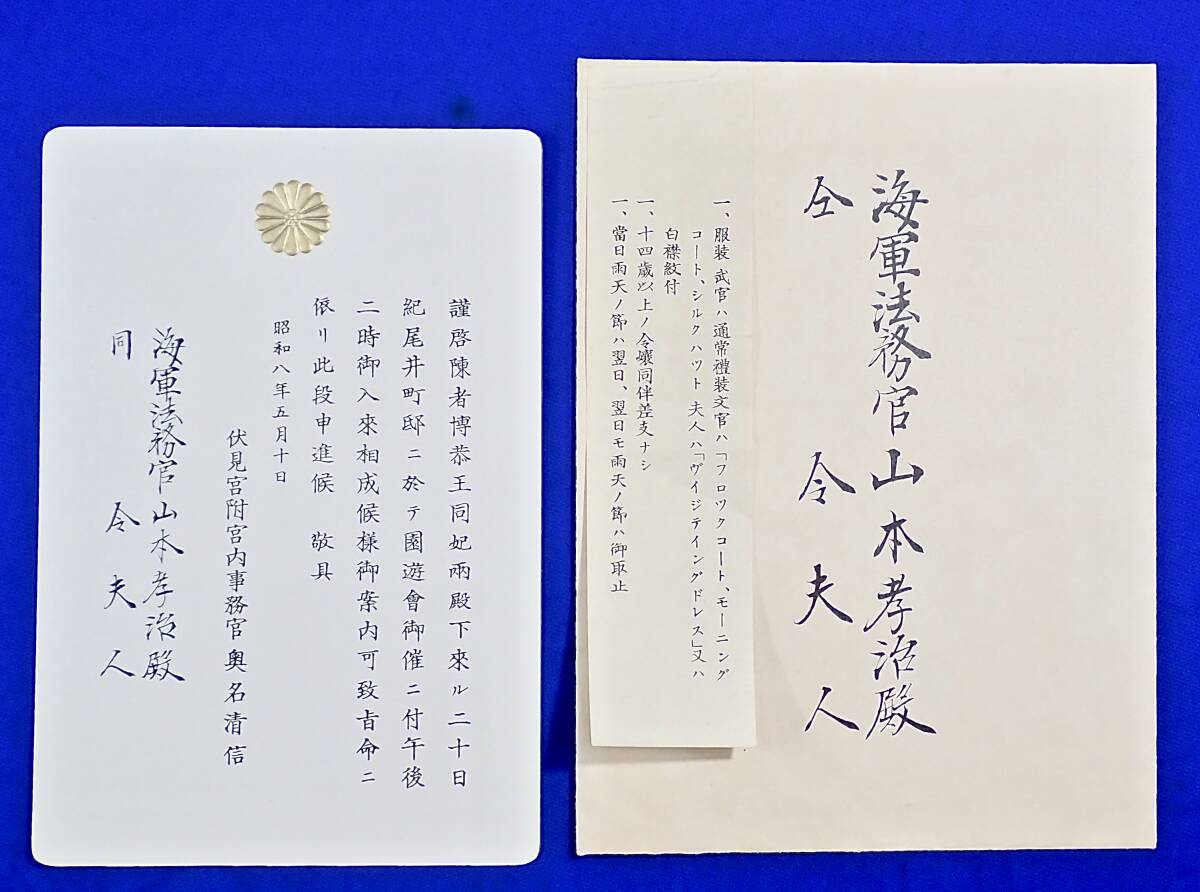 謹啓陳者博恭王同妃兩殿下來ル二十日
紀尾井町邸ニ於テ園遊會御催ニ付午後
二時御入來相成候様御案内可致旨命ニ
依リ此段申進候 敬具
昭和八年五月十日
伏見宮附宮内事務官奥名清信
海軍法務官山本孝治殿
同 令夫人
海軍法務官山本孝治殿
仝 令夫人
一、服装 武官ハ通常禮装文官ハ「フロツクコート、モーニング
コート、シルクハツト 夫人ハ「ヴイジテイングドレス」又ハ
白襟紋付
一、十四歳以上ノ令孃同伴差支ナシ
一、當日雨天ノ節ハ翌日、翌日モ雨天ノ節ハ御取止